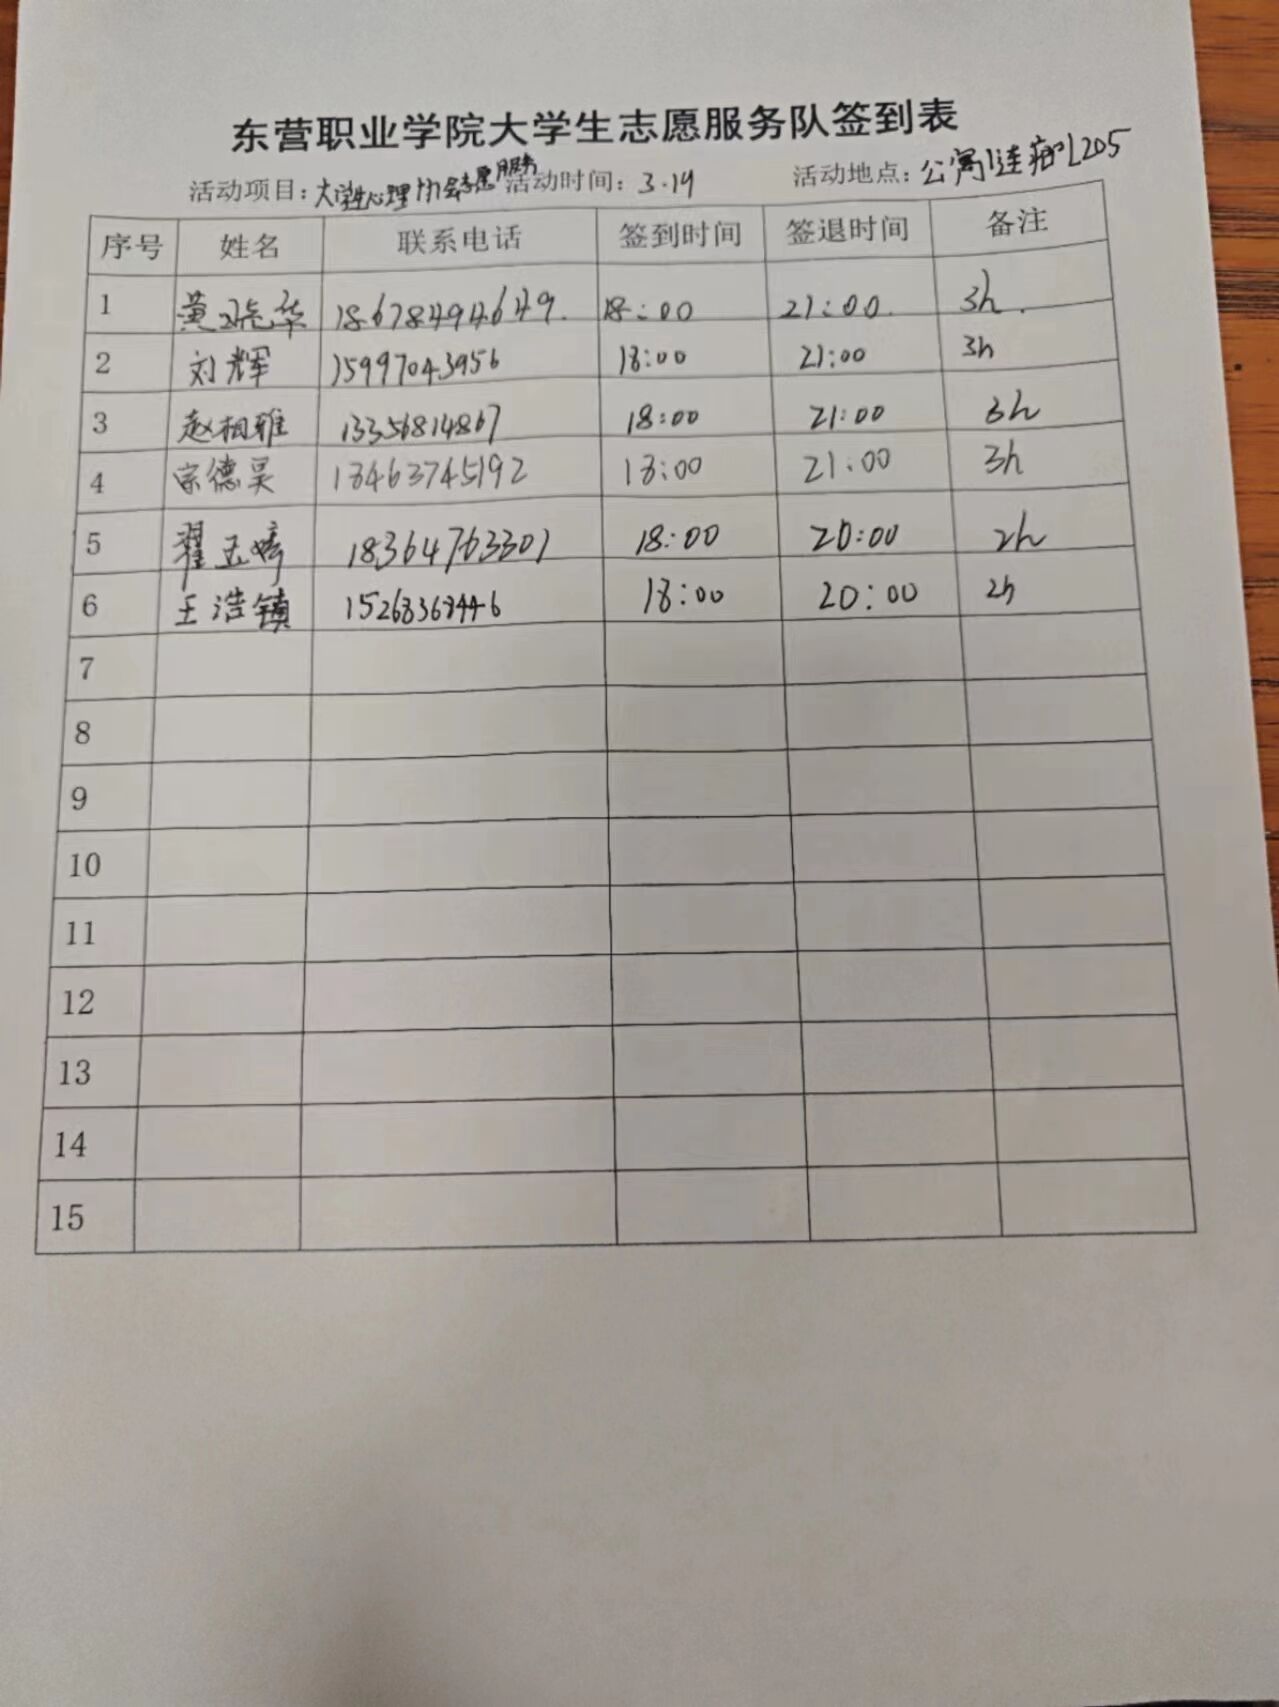 东营职业学院大学生志愿服务队签到表
活动项目：大学生心理协会志愿服务 活动时间：3.19 活动地点：公寓 L205
序号 姓名 联系电话 签到时间 签退时间 备注
1 黄 华 18678494649. 18:00 21:00. 3h.
2 刘辉 15997043956 18:00 21:00 3h
3 赵相雅 13356814867 18:00 21:00 3h
4 宗德昊 18463745192 18:00 21:00 3h
5 翟玉婷 18364763301 18:00 20:00 2h
6 王浩镇 15268368446 18:00 20:00 2h
7
8
9
10
11
12
13
14
15